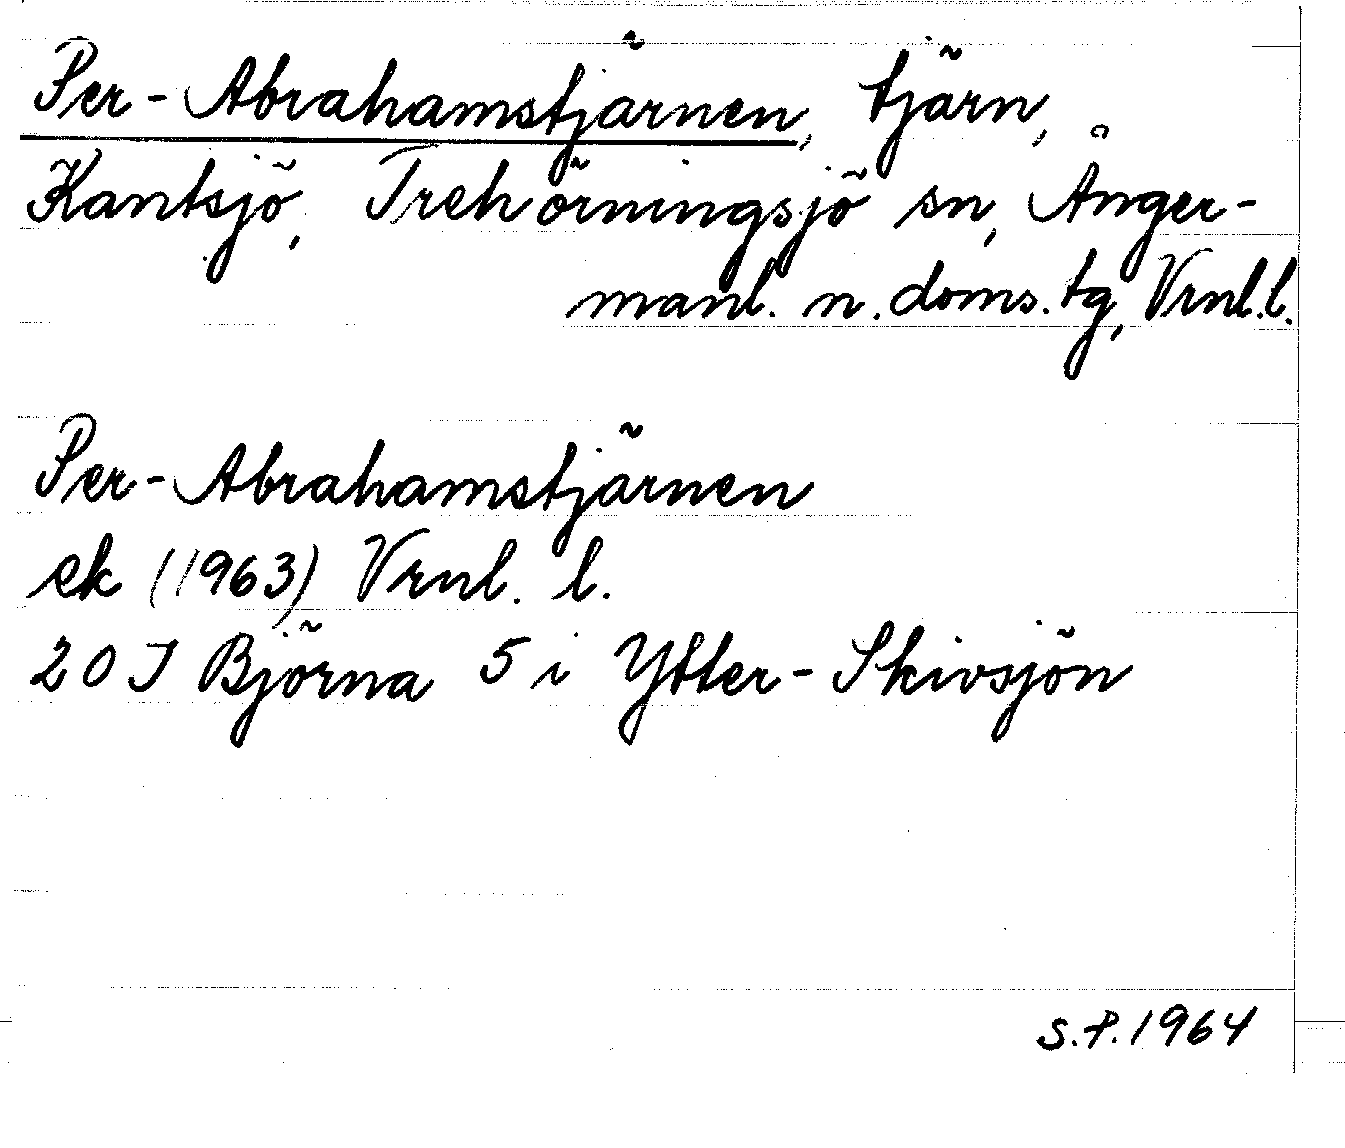 Per-Abrahamstjärnen, tjärn,
Kantsjö, Trehörningsjö sn, Ånger-
manl. n. doms. tg, Vrnl. l.
Per-Abrahamstjärnen
ek (1963) Vrnl. l.
20 J Björna 5 i Ytter-Skivsjön
S.P. 1964